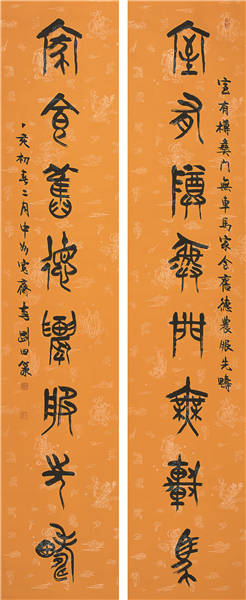 室有樽彝門無車馬家食舊德農服先疇
室有尊彝門無車馬
家食舊德農服先疇
丁亥初春二月中